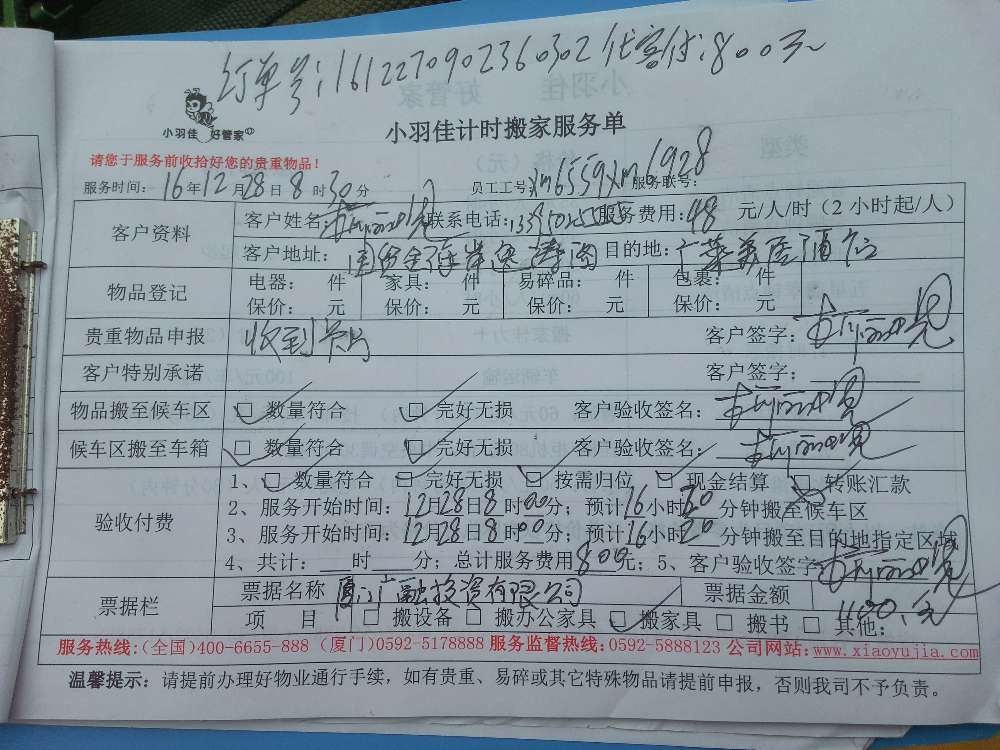 订单号:1612270902360302代客付:800元
小羽佳 好管家
小羽佳计时搬家服务单
请您于服务前收拾好您的贵重物品!
服务时间: 16年12月28日8时30分 员工工号: xm6559 xm6928 服务联号:
客户资料 客户姓名: 联系电话: 服务费用:48元/人/时(2小时起/人)
客户地址: 国贸金海岸 目的地:
物品登记 电器: 件 家具: 件 易碎品: 件 包裹: 件
保价: 元 保价: 元 保价: 元 保价: 元
贵重物品申报 收到 客户签字:
客户特别承诺 客户签字:
物品搬至候车区 □ 数量符合 □ 完好无损 客户验收签名:
候车区搬至车箱 □ 数量符合 □ 完好无损 客户验收签名:
验收付费 1、□ 数量符合 □ 完好无损 □ 按需归位 □ 现金结算 □ 转账汇款
2、服务开始时间:12月28日8时00分;预计16小时20分钟搬至候车区
3、服务开始时间:12月28日8时00分;预计16小时20分钟搬至目的地指定区域
4、共计: 时 分;总计服务费用800元;5、客户验收签字
票据栏 票据名称 厦门广融投资有限公司 票据金额 1100.元
项 目 □ 搬设备 □ 搬办公家具 □ 搬家具 □ 搬书 □ 其他:
服务热线:(全国)400-6655-888 (厦门)0592-5178888 服务监督热线:0592-5888123 公司网站:www.xiaoyujia.com
温馨提示:请提前办理好物业通行手续,如有贵重、易碎或其它特殊物品请提前申报,否则我司不予负责。